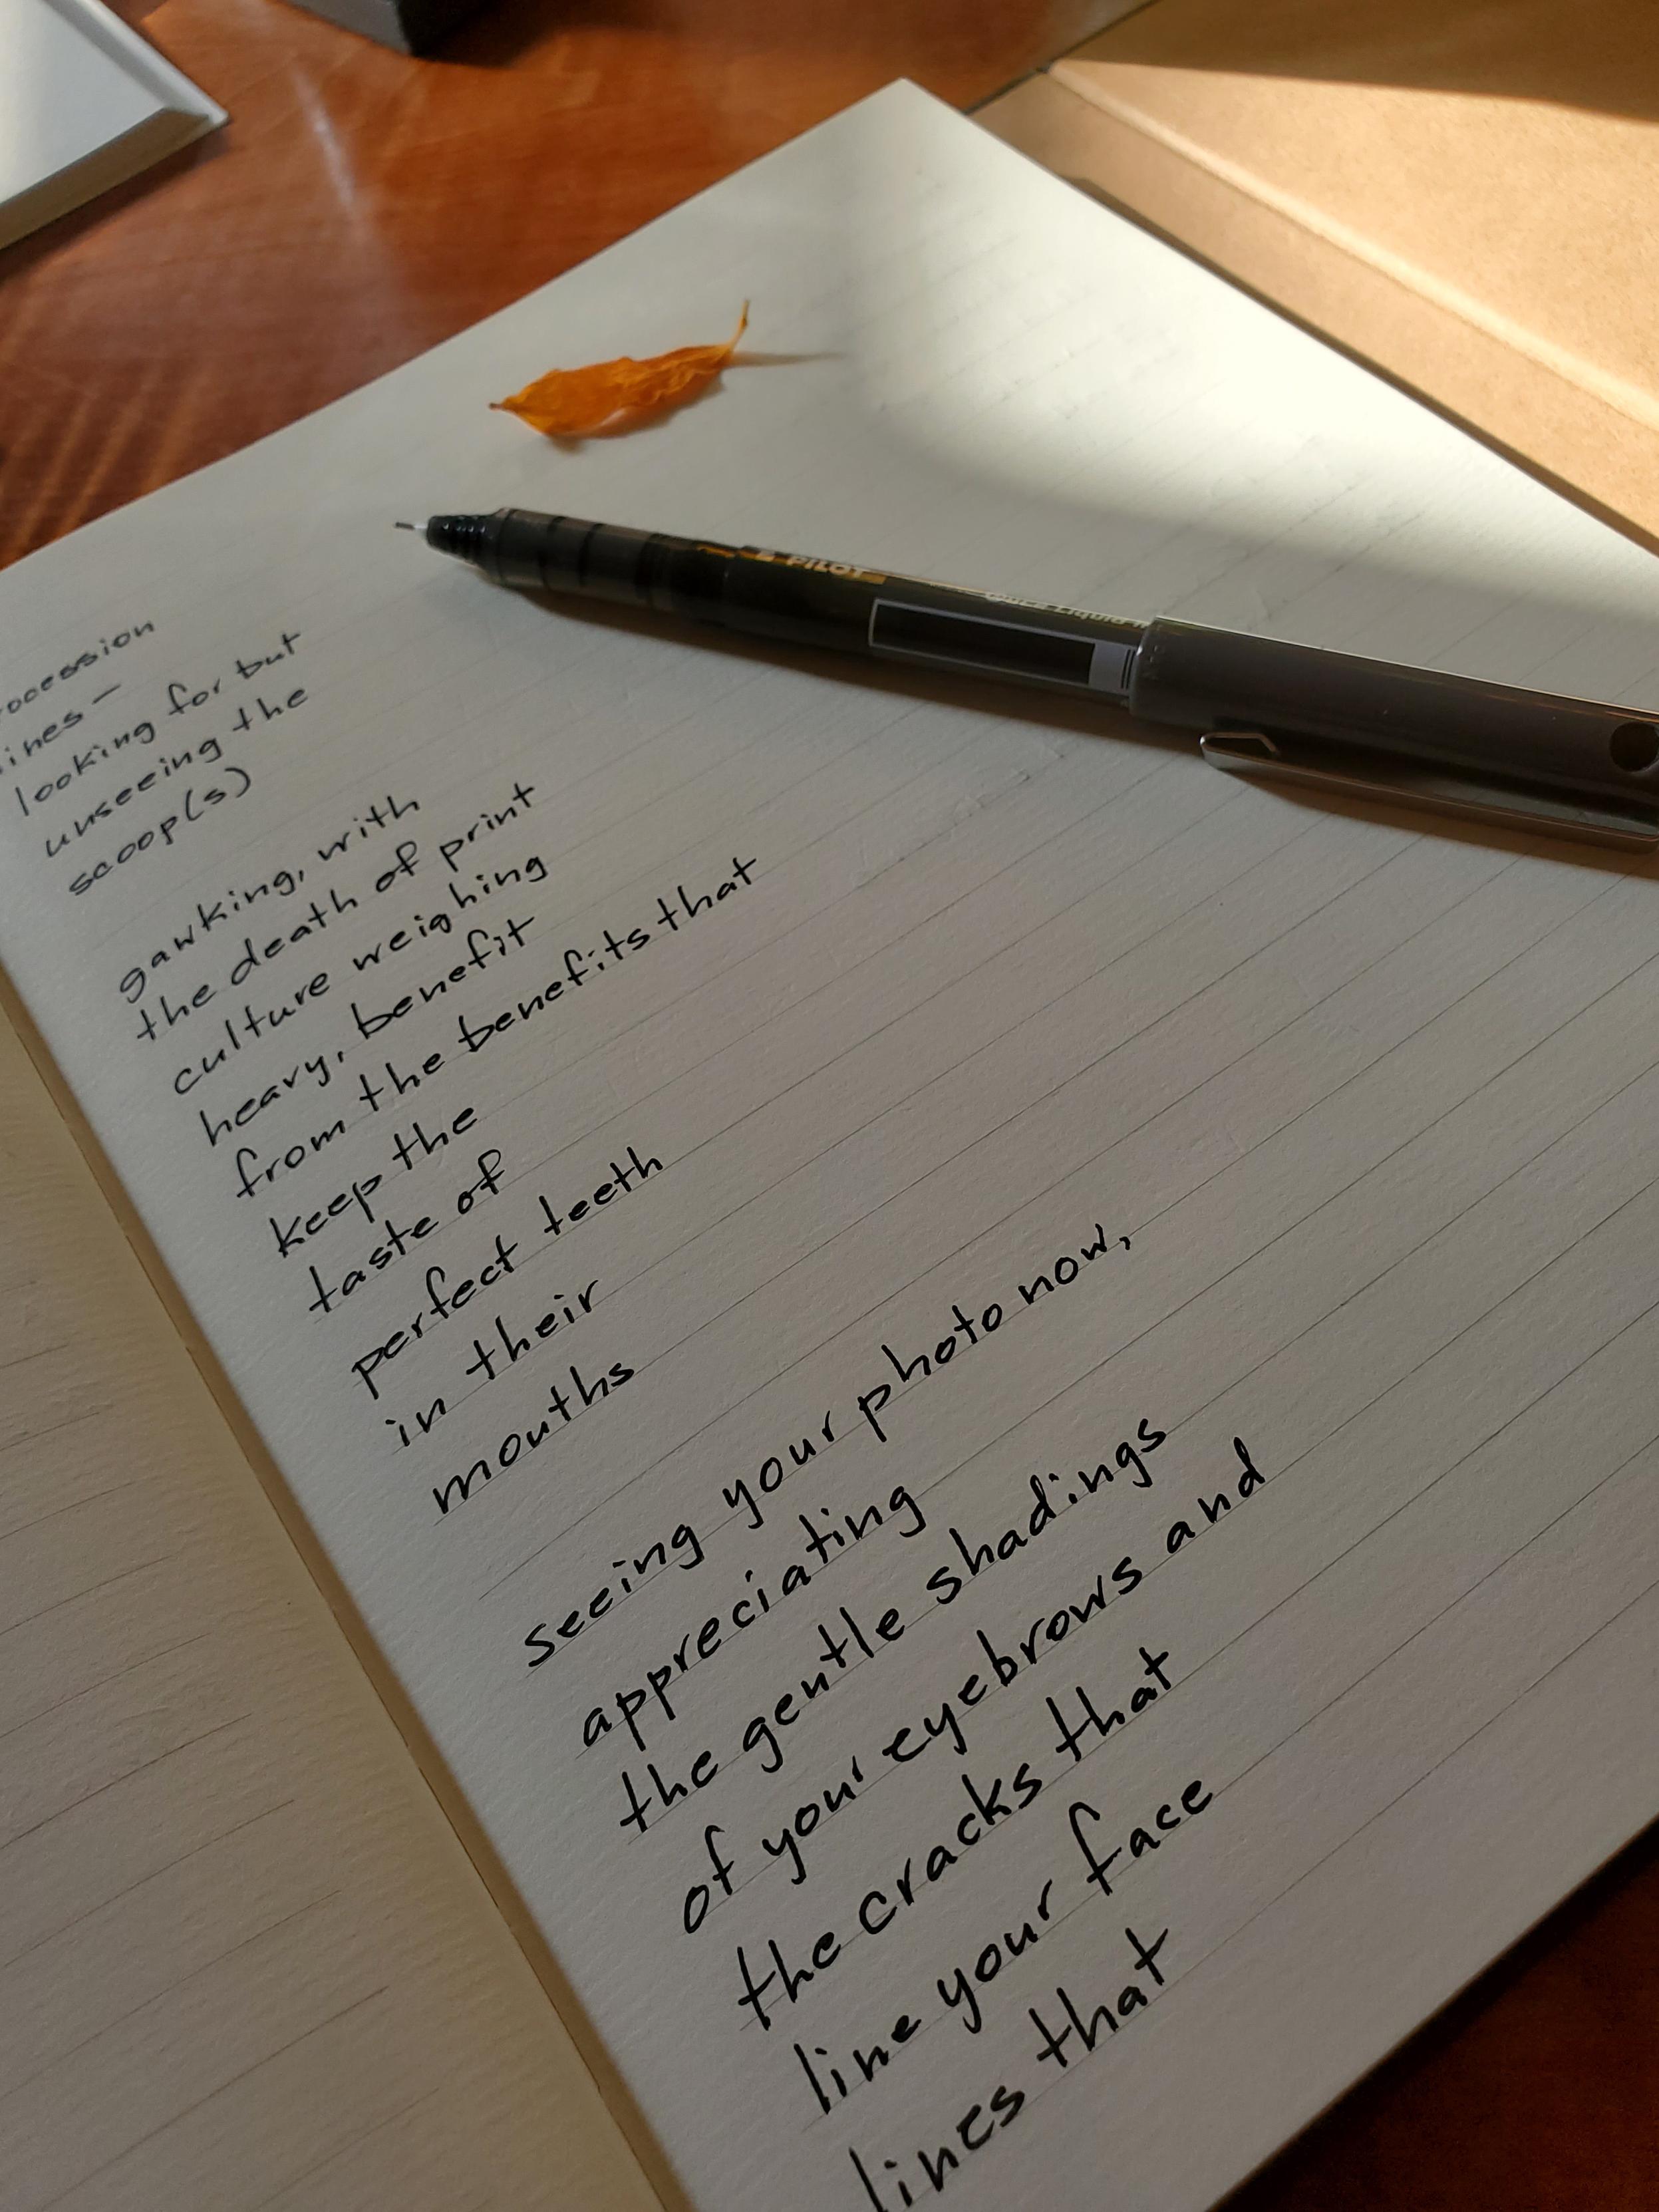 looking for but
unseeing the
scoop(s)
gawking, with
the death of print
culture weighing
heavy, benefit
from the benefits that
keep the
taste of
perfect teeth
in their
mouths
seeing your photo now,
appreciating
the gentle shadings
of your eyebrows and
the cracks that
line your face
lines that
PILOT